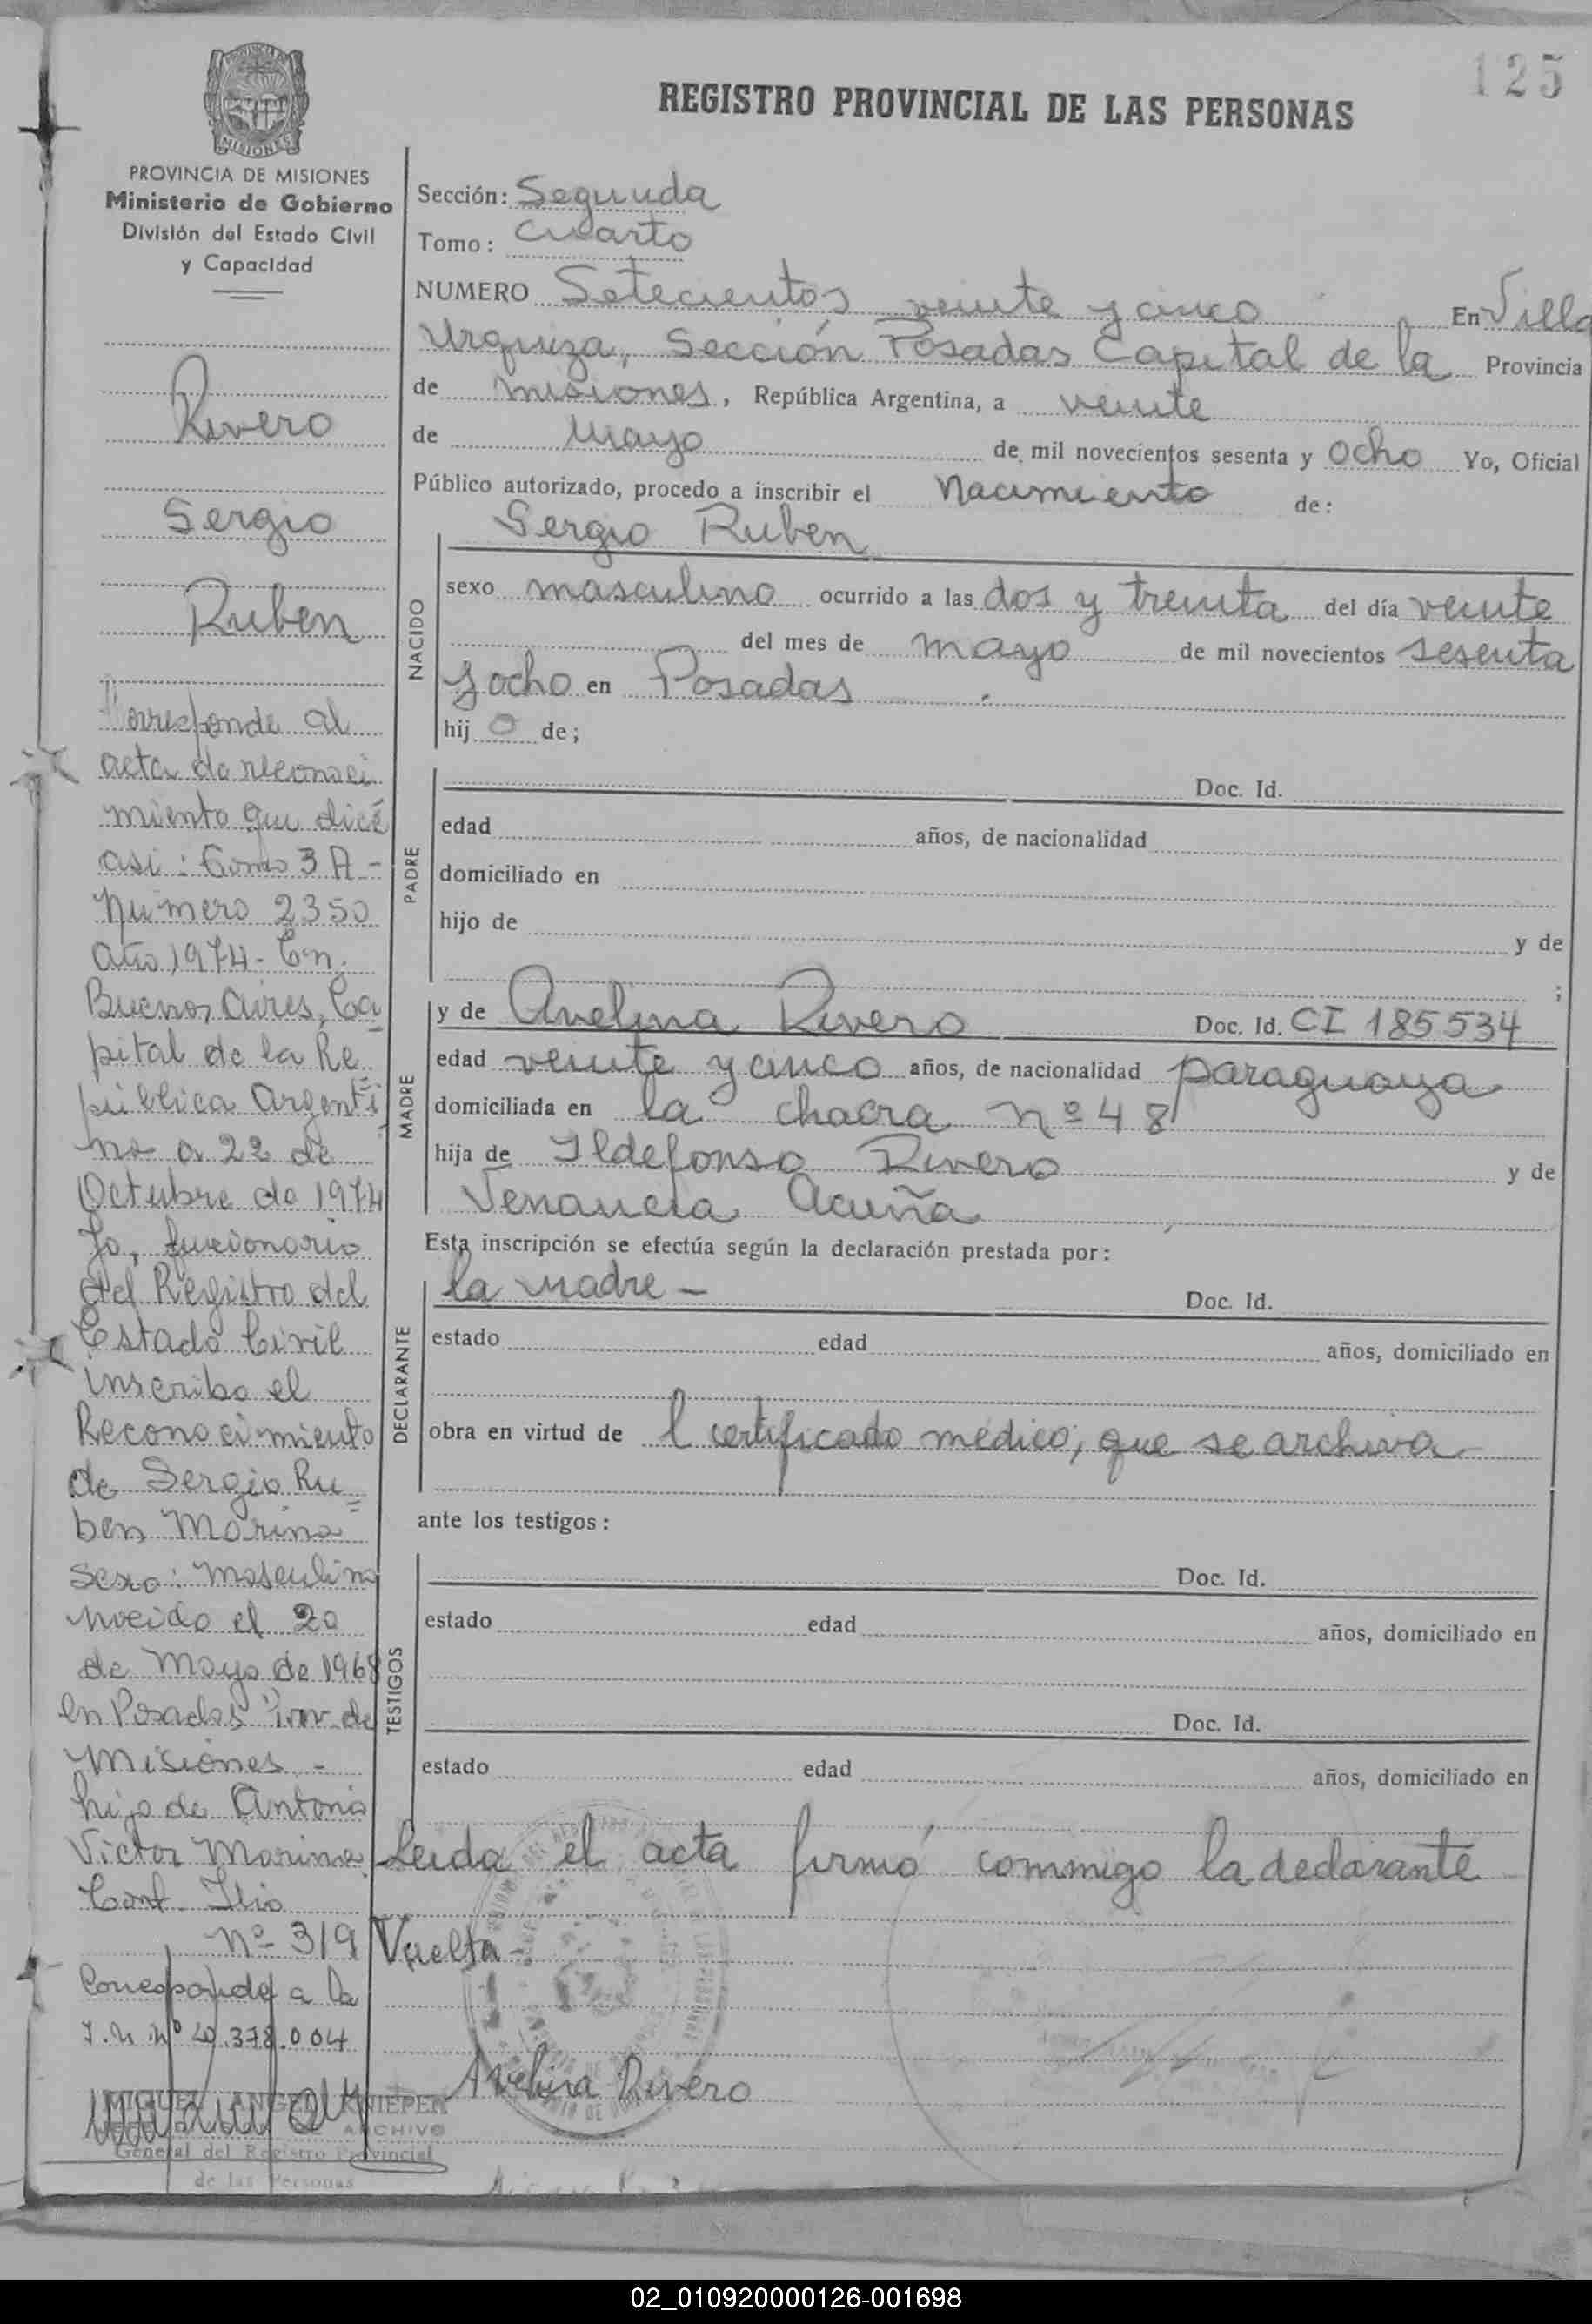 125
REGISTRO PROVINCIAL DE LAS PERSONAS
PROVINCIA DE MISIONES
Ministerio de Gobierno
División del Estado Civil
y Capacidad
Rivero
Sergio
Ruben
Corresponde al
acta de reconoci
miento que dice
asi: Tomo 3 A -
Número 2350
año 1974 - En
Buenos Aires, Ca
pital de la Re
pública Argenti
na a 22 de
Octubre de 1974
Yo, funcionario
del Registro del
Estado Civil
inscribo el
Reconocimiento
de Sergio Ru=
ben Marina
Sexo: Masculino
nacido el 20
de Mayo de 1968
en Posadas Prov. de
Misiones -
hijo de Antonio
Victor Marina
Cont. Flio
Nº 319
Corresponde a la
Nº 20.378.004
MIGUEL ANGEL KNIEPER
ARCHIVO
General del Registro Provincial
de las Personas
Sección: Segunda
Tomo: Cuarto
NUMERO Setecientos veinte y cinco En Villa
Urquiza, Sección Posadas Capital de la Provincia
de misiones, República Argentina, a veinte
de Mayo de mil novecientos sesenta y ocho Yo, Oficial
Público autorizado, procedo a inscribir el Nacimiento de:
Sergio Ruben
NACIDO
sexo masculino ocurrido a las dos y treinta del día veinte
del mes de mayo de mil novecientos sesenta
y ocho en Posadas.
hij o de;
PADRE
Doc. Id.
edad años, de nacionalidad
domiciliado en
hijo de y de
;
MADRE
y de Avelina Rivero Doc. Id. CI 185534
edad veinte y cinco años, de nacionalidad paraguaya
domiciliada en la chacra nº 48
hija de Ildefonso Rivero y de
Venancia Acuña
Esta inscripción se efectúa según la declaración prestada por:
DECLARANTE
la madre - Doc. Id.
estado edad años, domiciliado en
obra en virtud de l certificado médico, que se archiva
ante los testigos:
TESTIGOS
Doc. Id.
estado edad años, domiciliado en
Doc. Id.
estado edad años, domiciliado en
Leida el acta firmó commigo la declarante
Vuelta -
Avelina Rivero
02_010920000126-001698